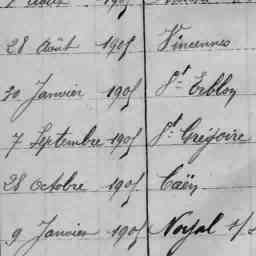 28 Août 1905 Vincennes
30 Janvier 1905 St Erblon
7 Septembre 1905 St Grégoire
28 Octobre 1905 Caën
9 Janvier 1905 Noyal s/